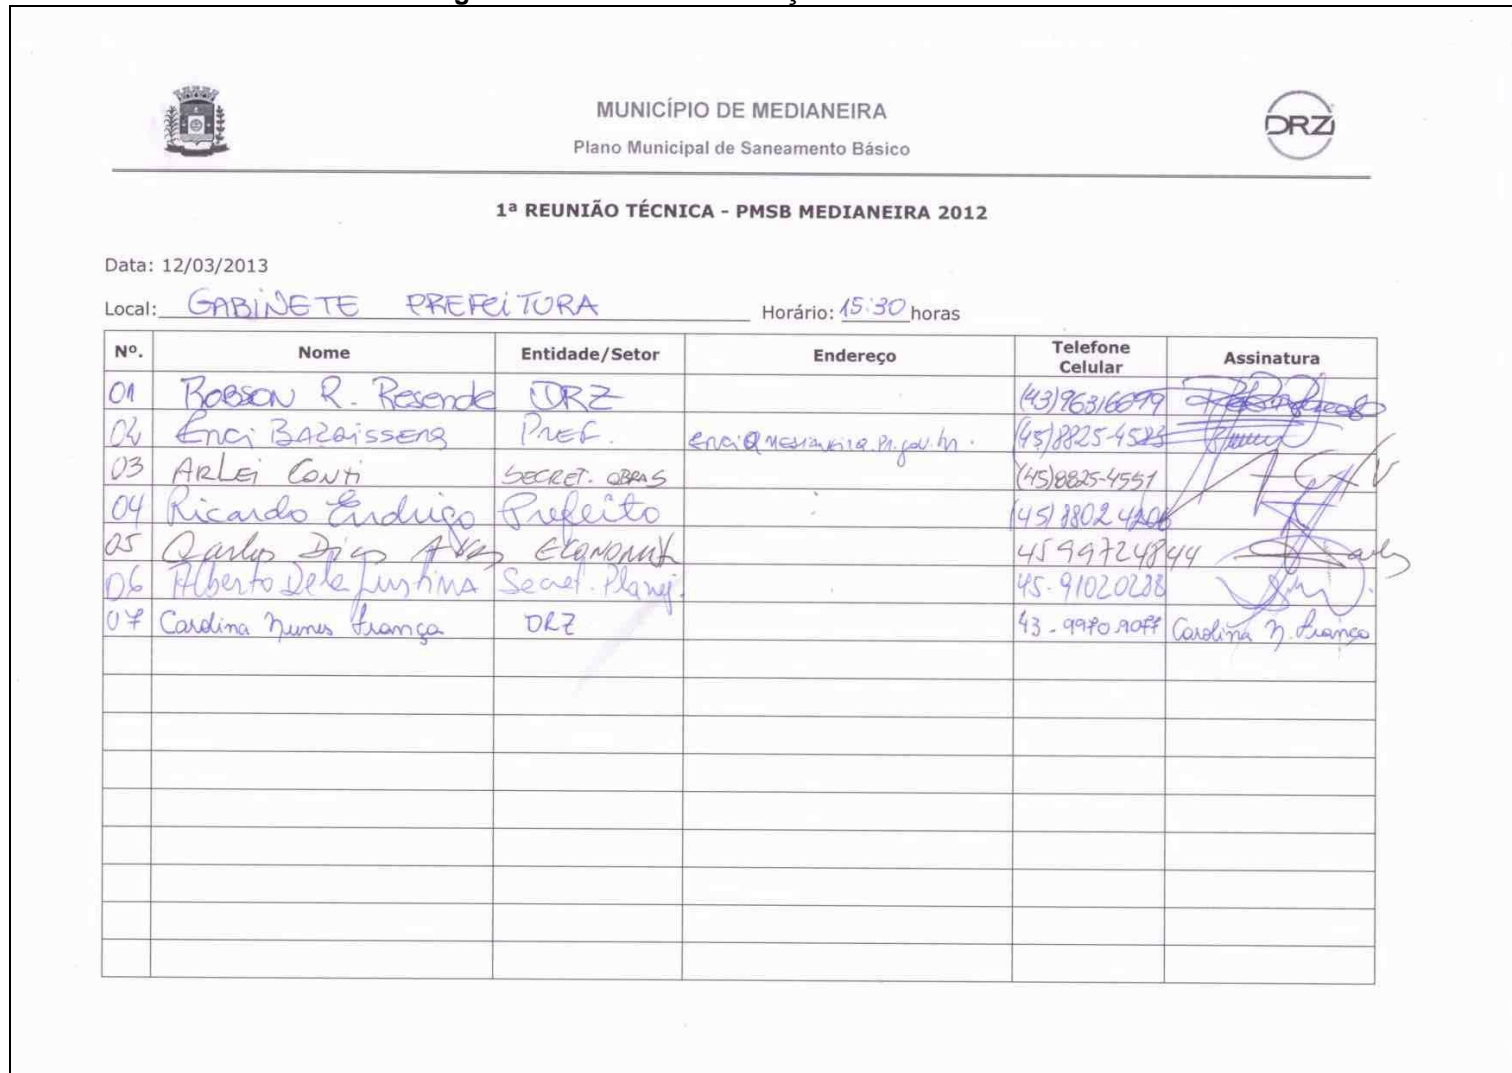 MUNICÍPIO DE MEDIANEIRA
DRZ
Plano Municipal de Saneamento Básico
1ª REUNIÃO TÉCNICA - PMSB MEDIANEIRA 2012
Data: 12/03/2013
Local: GABINETE PREFEITURA Horário: 15:30 horas
Nº. Nome Entidade/Setor Endereço Telefone Celular Assinatura
01 ROBSON R. Resende DRZ (43)96316699
02 Enci PREF. (45)8825-4583
03 ARLEI CONTI SECRET. OBRAS (45)8825-4551
04 Ricardo Endrigo Prefeito (45) 8802 4206
05 Carlos 45 99724844
06 Alberto Dela Justina Secret. Planej. 45-91020288
07 Carolina Nunes França DRZ 43-9970.9077 Carolina N. França